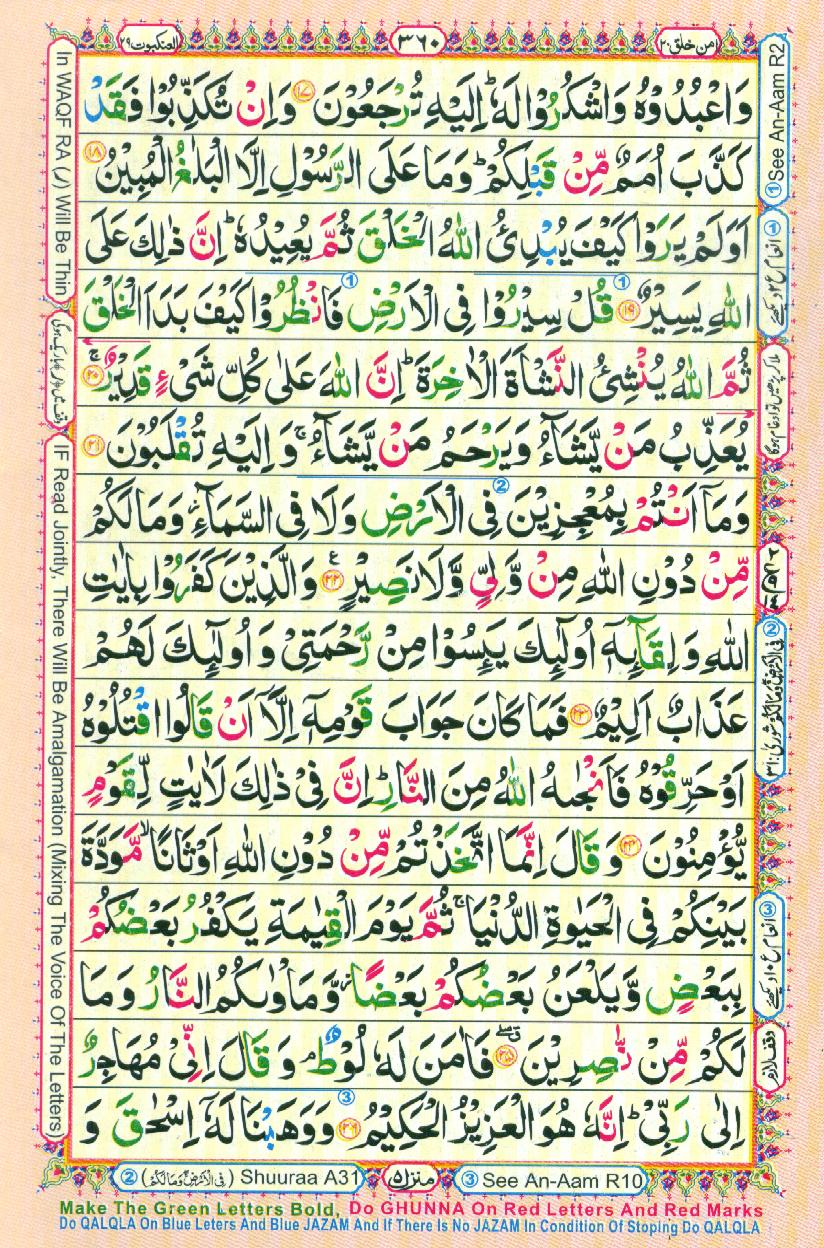 العنكبوت ٢٩
٣٦٠
امن خلق ٢٠
وَاعْبُدُوْهُ وَاشْكُرُوْا لَهٗ ؕ اِلَيْهِ تُرْجَعُوْنَ ﴿۱۷﴾ وَاِنْ تُكَذِّبُوْا فَقَدْ
كَذَّبَ اُمَمٌ مِّنْ قَبْلِكُمْ ؕ وَمَا عَلَى الرَّسُوْلِ اِلَّا الْبَلٰغُ الْمُبِيْنُ ﴿۱۸﴾
اَوَلَمْ يَرَوْا كَيْفَ يُبْدِئُ اللّٰهُ الْخَلْقَ ثُمَّ يُعِيْدُهٗ ؕ اِنَّ ذٰلِكَ عَلَى
اللّٰهِ يَسِيْرٌ ﴿۱۹﴾ قُلْ سِيْرُوْا فِى الْاَرْضِ فَانْظُرُوْا كَيْفَ بَدَاَ الْخَلْقَ
ثُمَّ اللّٰهُ يُنْشِئُ النَّشْاَةَ الْاٰخِرَةَ ؕ اِنَّ اللّٰهَ عَلٰى كُلِّ شَىْءٍ قَدِيْرٌ ۚ ﴿۲۰﴾
يُعَذِّبُ مَنْ يَّشَآءُ وَيَرْحَمُ مَنْ يَّشَآءُ ۚ وَاِلَيْهِ تُقْلَبُوْنَ ﴿۲۱﴾
وَمَآ اَنْتُمْ بِمُعْجِزِيْنَ فِى الْاَرْضِ وَلَا فِى السَّمَآءِ ؗ وَمَا لَكُمْ
مِّنْ دُوْنِ اللّٰهِ مِنْ وَّلِىٍّ وَّلَا نَصِيْرٍ ﴿۲۲﴾ ع وَالَّذِيْنَ كَفَرُوْا بِاٰيٰتِ
اللّٰهِ وَلِقَآئِهٖٓ اُولٰٓئِكَ يَئِسُوْا مِنْ رَّحْمَتِىْ وَاُولٰٓئِكَ لَهُمْ
عَذَابٌ اَلِيْمٌ ﴿۲۳﴾ فَمَا كَانَ جَوَابَ قَوْمِهٖٓ اِلَّآ اَنْ قَالُوا اقْتُلُوْهُ
اَوْ حَرِّقُوْهُ فَاَنْجٰىهُ اللّٰهُ مِنَ النَّارِ ؕ اِنَّ فِىْ ذٰلِكَ لَاٰيٰتٍ لِّقَوْمٍ
يُّؤْمِنُوْنَ ﴿۲۴﴾ وَقَالَ اِنَّمَا اتَّخَذْتُمْ مِّنْ دُوْنِ اللّٰهِ اَوْثَانًا ۙ مَّوَدَّةَ
بَيْنِكُمْ فِى الْحَيٰوةِ الدُّنْيَا ۚ ثُمَّ يَوْمَ الْقِيٰمَةِ يَكْفُرُ بَعْضُكُمْ
بِبَعْضٍ وَّيَلْعَنُ بَعْضُكُمْ بَعْضًا ؗ وَّمَاْوٰىكُمُ النَّارُ وَمَا
لَكُمْ مِّنْ نّٰصِرِيْنَ ﴿۲۵﴾ فَاٰمَنَ لَهٗ لُوْطٌ ۘ وَقَالَ اِنِّىْ مُهَاجِرٌ
اِلٰى رَبِّىْ ؕ اِنَّهٗ هُوَ الْعَزِيْزُ الْحَكِيْمُ ﴿۲۶﴾ وَوَهَبْنَا لَهٗٓ اِسْحٰقَ وَ
① See An-Aam R2
② فى الارض ومالكم شورى
وقف لازم
In WAQF RA (ر) Will Be Thin
IF Read Jointly, There Will Be Amalgamation (Mixing The Voice Of The Letters)
② (فِى الْاَرْضِ وَمَا لَكُمْ) Shuuraa A31
منزل ۵
③ See An-Aam R10
Make The Green Letters Bold, Do GHUNNA On Red Letters And Red Marks
Do QALQLA On Blue Leters And Blue JAZAM And If There Is No JAZAM In Condition Of Stoping Do QALQLA